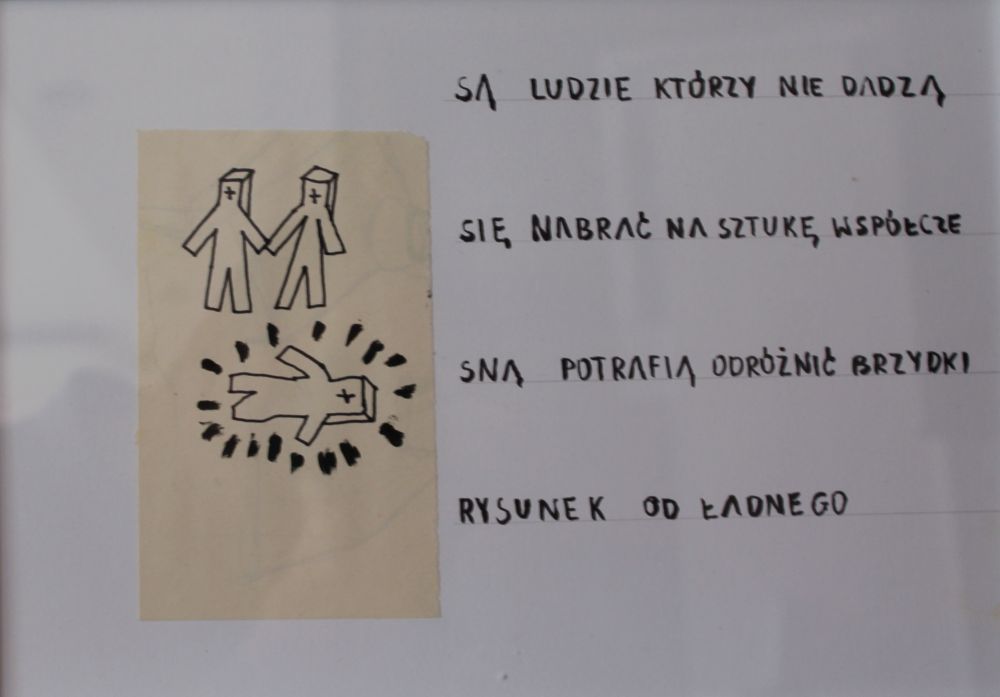 SĄ LUDZIE KTÓRZY NIE DADZĄ
SIĘ NABRAĆ NA SZTUKĘ WSPÓŁCZE
SNĄ POTRAFIĄ ODRÓŻNIĆ BRZYDKI
RYSUNEK OD ŁADNEGO